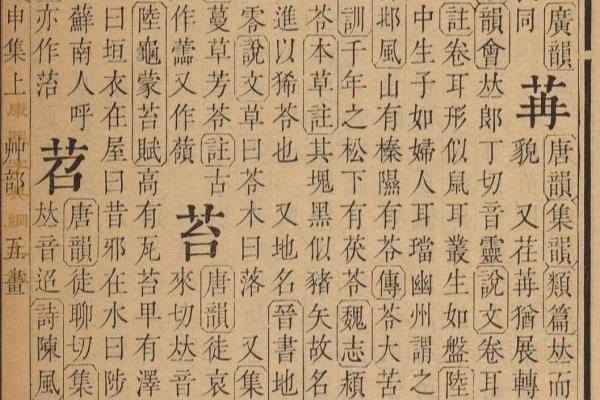 廣韻
同
苒
唐韻集韻類篇𠀤而
貌 又荏苒猶展轉
韻會𠀤郎丁切音靈說文卷耳
註卷耳形似鼠耳叢生如盤陸
中生子如婦人耳璫幽州謂之
邶風山有榛隰有苓傳苓大苦
訓千年之松下有茯苓魏志
苓本草註其塊黑似豬矢故名
進以豨苓也 又地名晉書地
零說文草曰苓木曰落 又集
蔓草芳苓註古
作蘦又作
苔
唐韻徒哀
來切𠀤音
陸龜蒙苔賦高有瓦苔卑有澤
曰垣衣在屋曰昔邪在水曰陟
蘇南人呼
亦作菭
苕
唐韻徒聊切集
𠀤音迢詩陳風
申集上 艸部 五畫